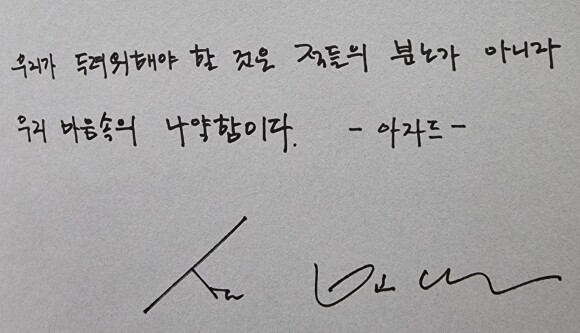 우리가 두려워해야 할 것은 적들의 분노가 아니라
우리 마음속의 나약함이다. - 아자드 -